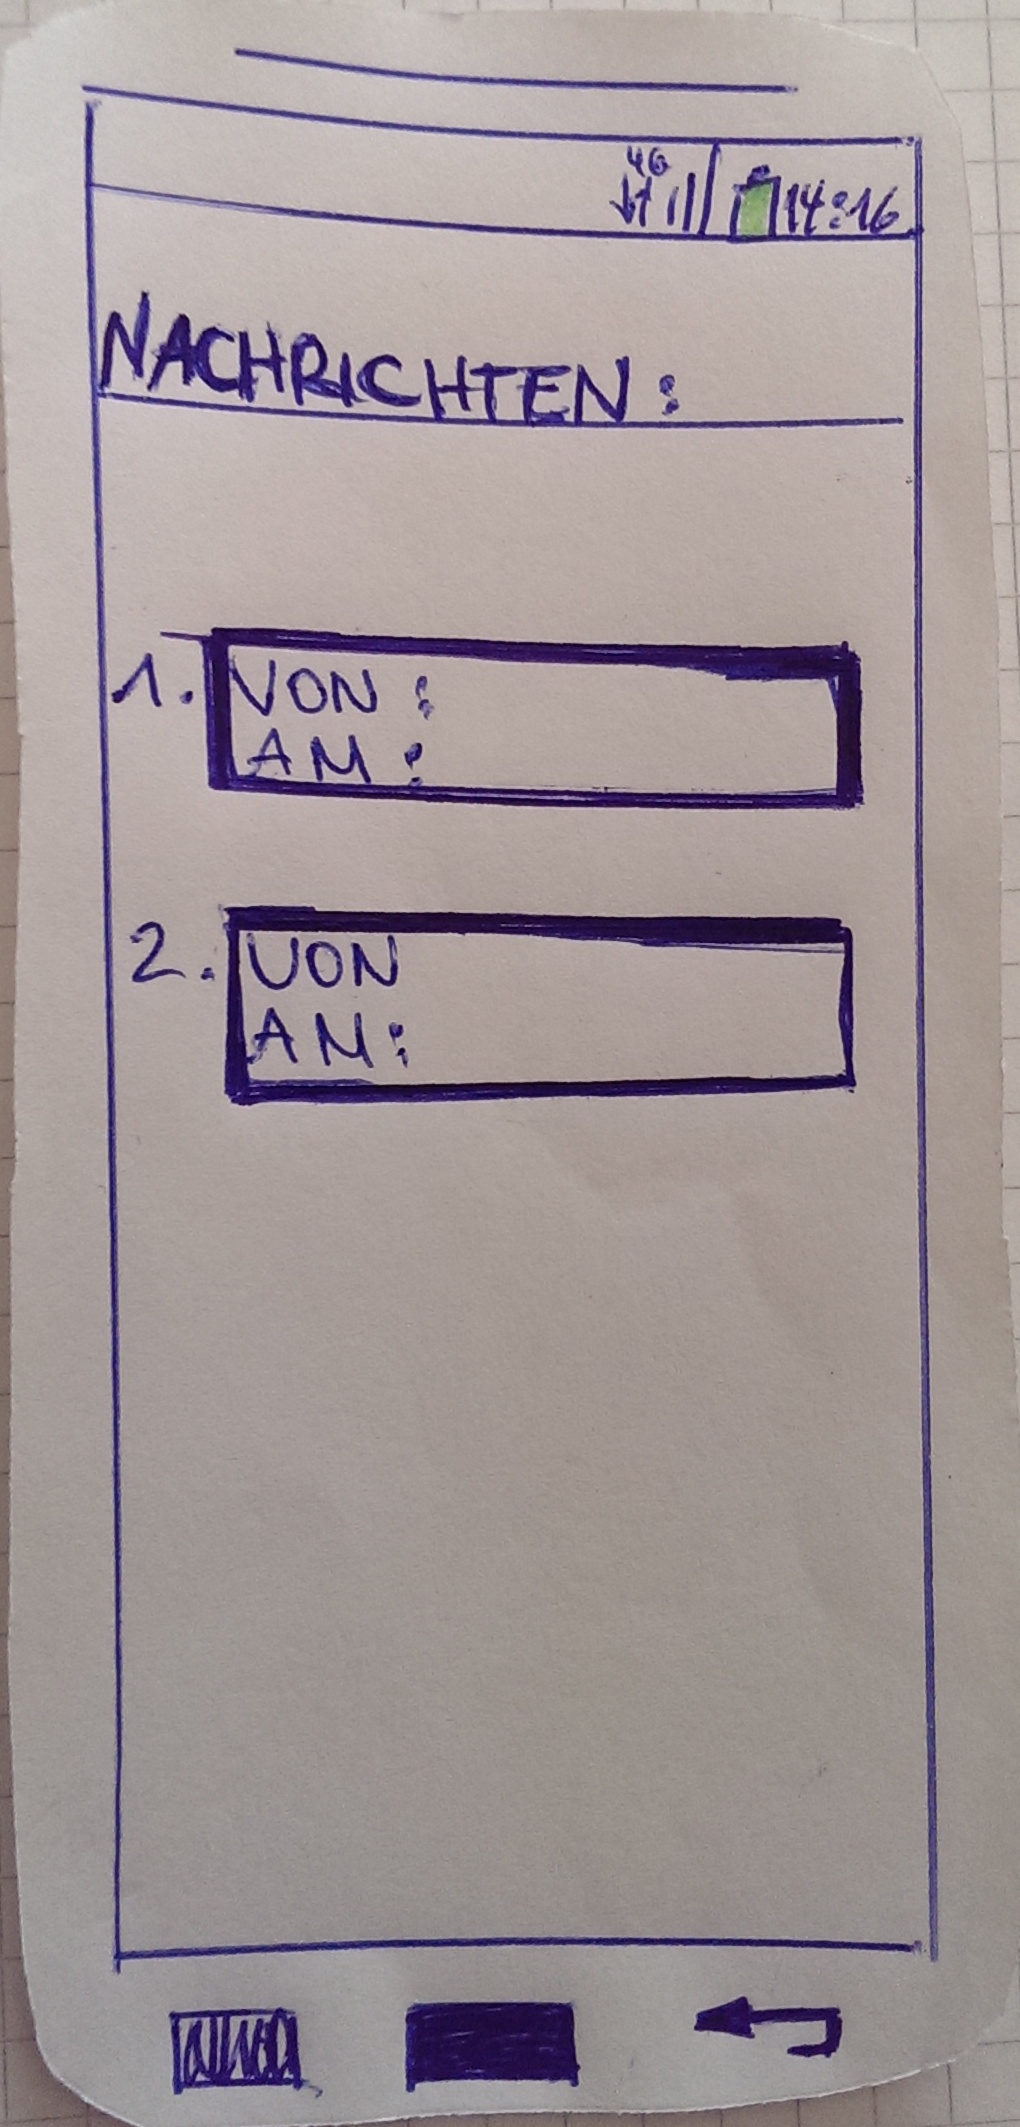 4G
14:16
NACHRICHTEN:
1. VON:
AM:
2. VON
AM: